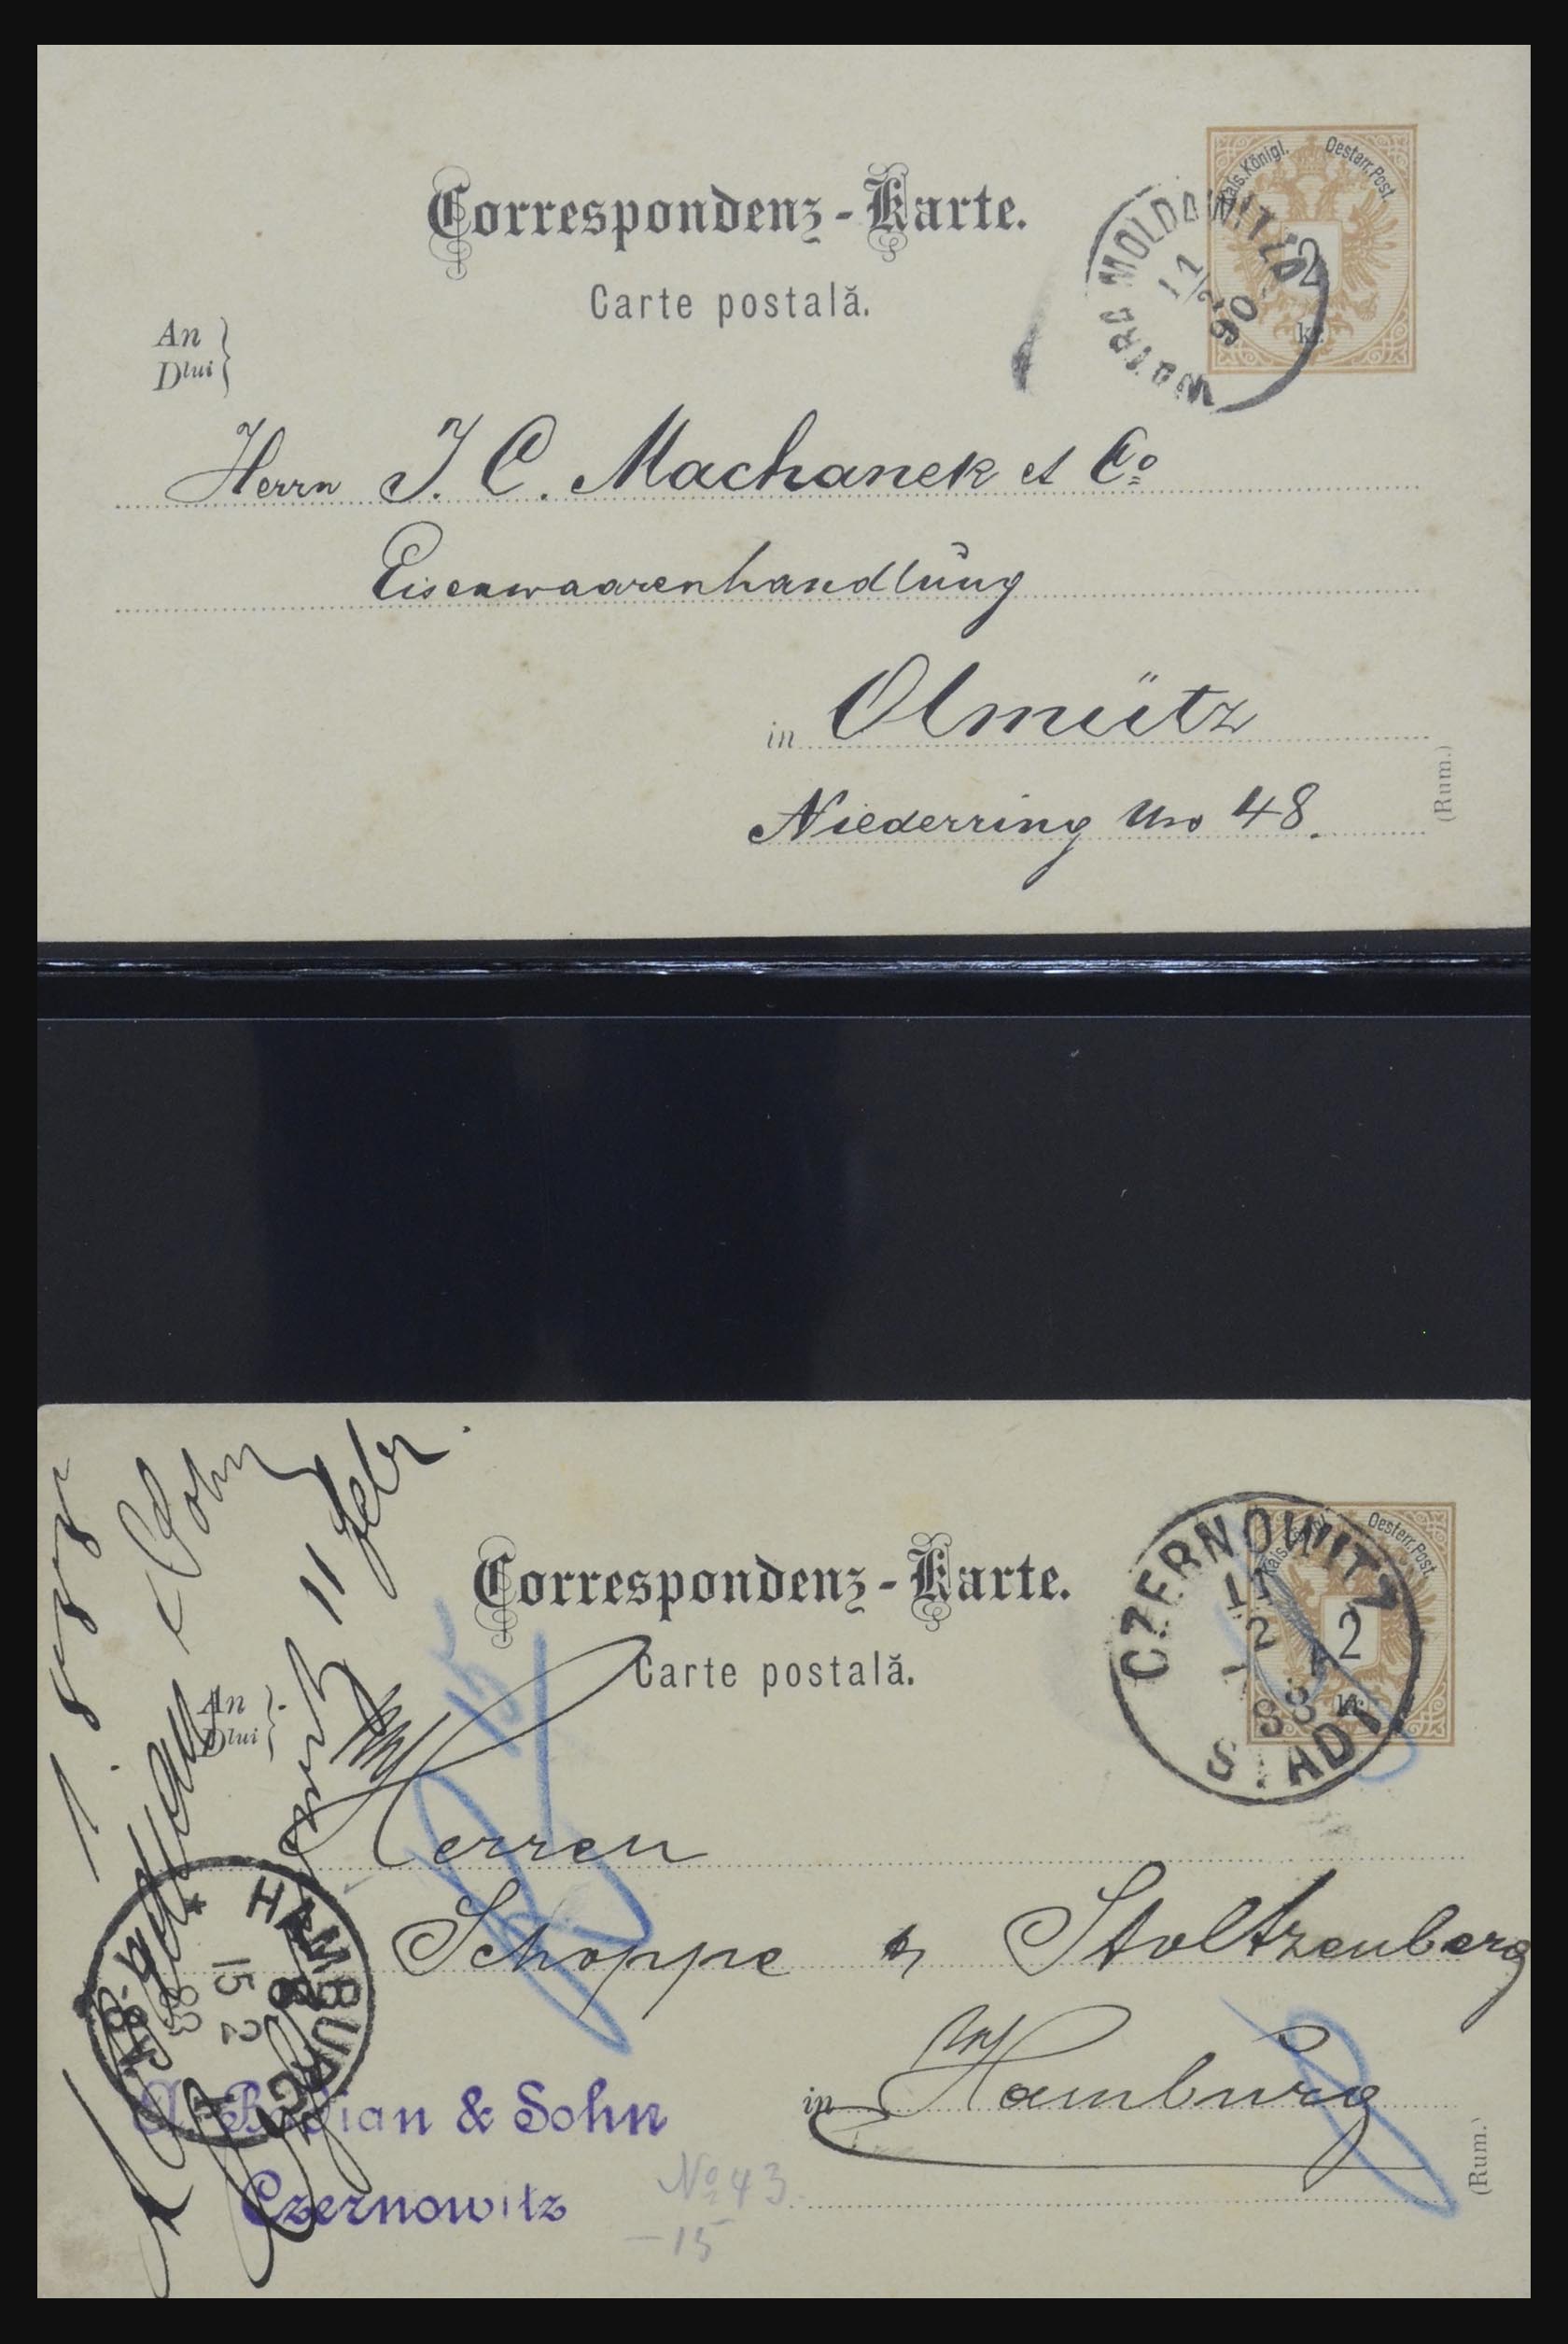 Correspondenz-Karte.
Carte postală.
Kais. Königl. Oesterr. Post.
2
kr.
WATRA MOLDAWITZA
11/2
90
An
Dlui
Herrn J. C. Machanek et Co
Eisenwaarenhandlung
in Olmütz
Niederring No 48.
(Rum.)
Correspondenz-Karte.
Carte postală.
Kais. Oesterr. Post.
2
kr.
CZERNOWITZ
11
2
88
STADT
& Sohn
11 Febr.
An
Dlui
15
Herren
Schoppe & Stoltzenberg
in Hamburg
HAMBURG
15 2
88
& Sohn
Czernowitz
No 43
- 15
(Rum.)